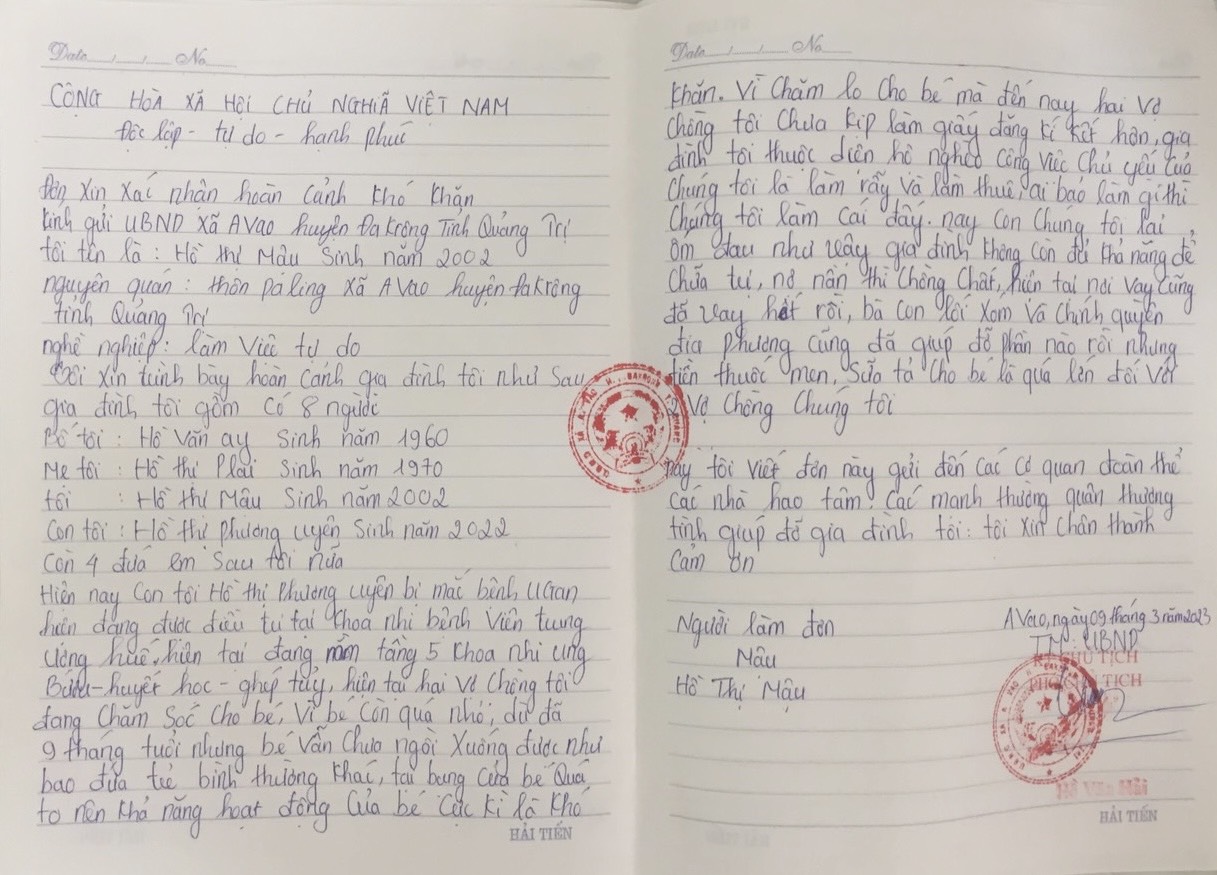 Date / / No
CỘNG HÒA XÃ HỘI CHỦ NGHIÃ VIỆT NAM
Độc lập - tự do - hạnh phúc
Đơn Xin Xác nhận hoàn Cảnh Khó Khăn
Kính gửi UBND Xã AVao huyện Đakrông Tỉnh Quảng Trị
tôi tên là : Hồ thị Mậu Sinh năm 2002
nguyên quán : thôn paling Xã AVao huyện Đakrông
tỉnh Quảng Trị
nghề nghiệp : làm Việc tự do
tôi Xin trình bày hoàn Cảnh gia đình tôi như Sau
gia đình tôi gồm Có 8 người
Bố tôi : Hồ Văn ay Sinh năm 1960
Mẹ tôi : Hồ thị Plai Sinh năm 1970
tôi : Hồ thị Mậu Sinh năm 2002
Con tôi : Hồ thị Phương uyên Sinh năm 2022
Còn 4 đứa em Sau tôi nữa
Hiện nay Con tôi Hồ thị Phương uyên bị mắc bệnh UGan
hiện đang được điều tri tại Khoa nhi bệnh Viện trung
ương huế, hiện tại đang nằm tầng 5 Khoa nhi ung
Bướu - huyết học - ghép tủy, hiện tại hai Vợ Chồng tôi
đang Chăm Sóc Cho bé, Vì bé Còn quá nhỏ, dù đã
9 tháng tuổi nhưng bé Vẫn Chưa ngồi Xuống được như
bao đứa trẻ bình thường Khác, tại bụng Của bé Quá
to nên Khả năng hoạt động Của bé Cực Kì là Khó
HẢI TIẾN
Date / / No
Khăn. Vì Chăm lo Cho bé mà đến nay hai Vợ
Chồng tôi Chưa Kịp làm giấy đăng kí Kết hôn, gia
đình tôi thuộc diện hộ nghèo Công Việc Chủ yếu Của
Chúng tôi là làm rẫy Và làm thuê, ai bảo làm gì thì
Chúng tôi làm Cái đấy. nay Con Chúng tôi lại
ốm đau như Vậy gia đình Không Còn đủ Khả năng để
Chữa trị, nợ nần thì Chồng Chất, hiện tại nơi Vay Cũng
đã Vay hết rồi, bà Con lối Xóm Và Chính quyền
địa Phương Cũng đã giúp đỡ phần nào rồi nhưng
tiền thuốc men, Sữa tả Cho bé là quá lớn đối Với
2 Vợ Chồng Chúng tôi
nay tôi Viết đơn này gửi đến Các Cơ quan đoàn thể
Các nhà hảo tâm, Các mạnh thường quân thương
tình giúp đỡ gia đình tôi : tôi Xin Chân thành
Cảm ơn
Người làm đơn
Mậu
Hồ Thị Mậu
AVao, ngày 09 tháng 3 năm 2023
TM. UBND
KT. CHỦ TỊCH
PHÓ CHỦ TỊCH
HẢI TIẾN